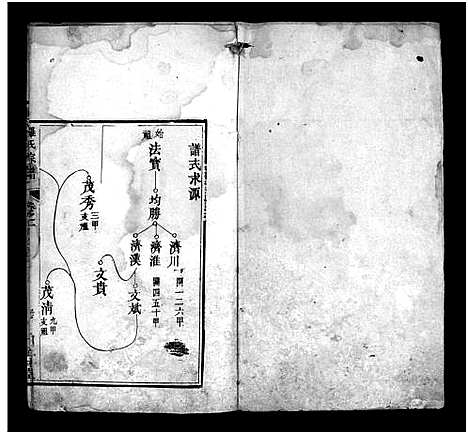 譜式水源
始祖
法寶
均勝
濟川
開一二六甲
濟淮
開四五十甲
濟漢
文斌
文貴
茂秀
三甲支祖
茂清
九甲支祖